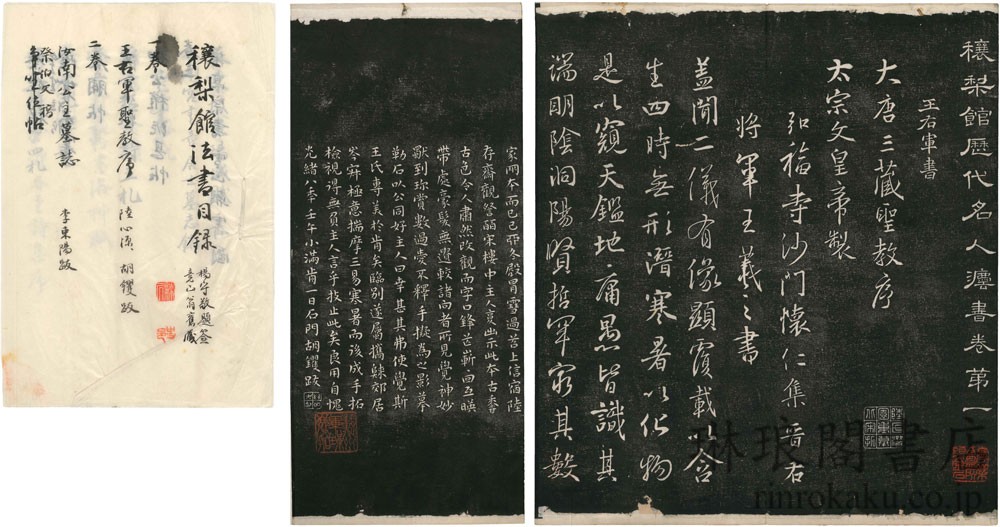 穰梨館歷代名人灋書卷第一
王右軍書
大唐三藏聖教序
太宗文皇帝製
弘福寺沙門懷仁集晉右
將軍王羲之書
蓋聞二儀有像顯覆載以含
生四時無形潛寒暑以化物
是以窺天鑑地庸愚皆識其
端明陰洞陽賢哲罕窮其數
琳琅閣書店
rinrokaku.co.jp
本而已冬冒雪過苕上信宿陸
存齋觀察皕宋樓中主人出示此本古香
古色令人肅然改觀而字口鋒芒嶄
帶處豪髮無遺較諸向者所見覺神妙
歎到珍賞數過愛不釋手擬為之影摹
勒石以公同好主人曰幸甚其弗使覺斯
王氏專美於肯矣臨別遂屬攜歸郊居
岑寂極意揣摩三易寒暑而後成手拓
檢視得無負主人言乎技止此矣良用自愧
光緒八年壬午小滿肯一日石門胡钁跋
穰梨館法書目錄
楊守敬題簽
翁舊藏
一卷
王右軍聖教序
陸心源
胡钁跋
二卷
汝南公主墓誌
李東陽跋
祭伯文稿
爭坐位帖